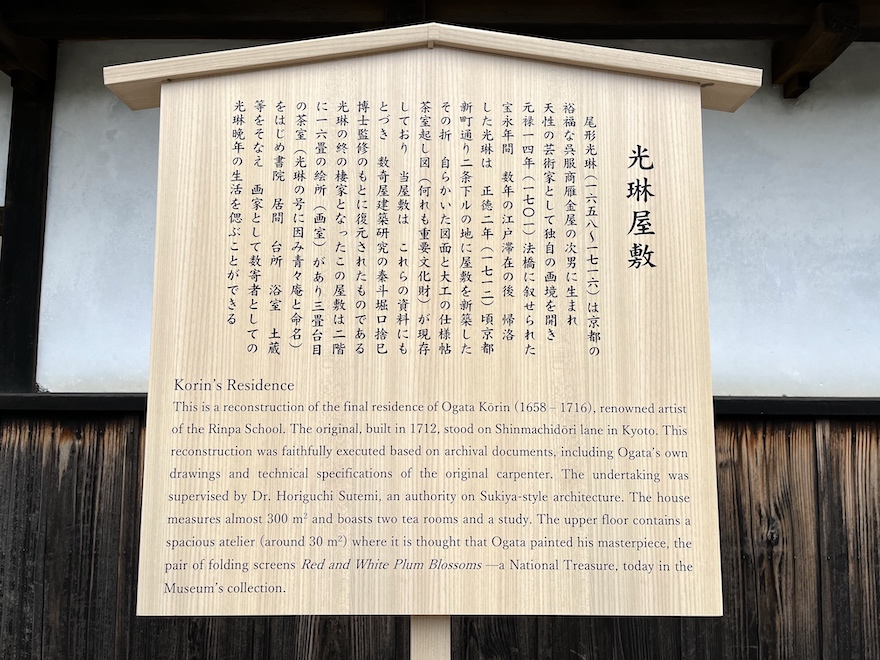 光琳屋敷
尾形光琳(一六五八〜一七一六)は京都の
裕福な呉服商雁金屋の次男に生まれ
天性の芸術家として独自の画境を開き
元禄一四年(一七〇一)法橋に叙せられた
宝永年間 数年の江戸滞在の後 帰洛
した光琳は 正徳二年(一七一二)頃京都
新町通り二条下ルの地に屋敷を新築した
その折 自らかいた図面と大工の仕様帖
茶室起し図(何れも重要文化財)が現存
しており 当屋敷は これらの資料にも
とづき 数奇屋建築研究の泰斗堀口捨巳
博士監修のもとに復元されたものである
光琳の終の棲家となったこの屋敷は二階
に一六畳の絵所(画室)があり三畳台目
の茶室(光琳の号に因み青々庵と命名)
をはじめ書院 居間 台所 浴室 土蔵
等をそなえ 画家として数寄者としての
光琳晩年の生活を偲ぶことができる
Korin's Residence
This is a reconstruction of the final residence of Ogata Kōrin (1658 – 1716), renowned artist
of the Rinpa School. The original, built in 1712, stood on Shinmachidōri lane in Kyoto. This
reconstruction was faithfully executed based on archival documents, including Ogata's own
drawings and technical specifications of the original carpenter. The undertaking was
supervised by Dr. Horiguchi Sutemi, an authority on Sukiya-style architecture. The house
measures almost 300 m² and boasts two tea rooms and a study. The upper floor contains a
spacious atelier (around 30 m²) where it is thought that Ogata painted his masterpiece, the
pair of folding screens Red and White Plum Blossoms —a National Treasure, today in the
Museum's collection.